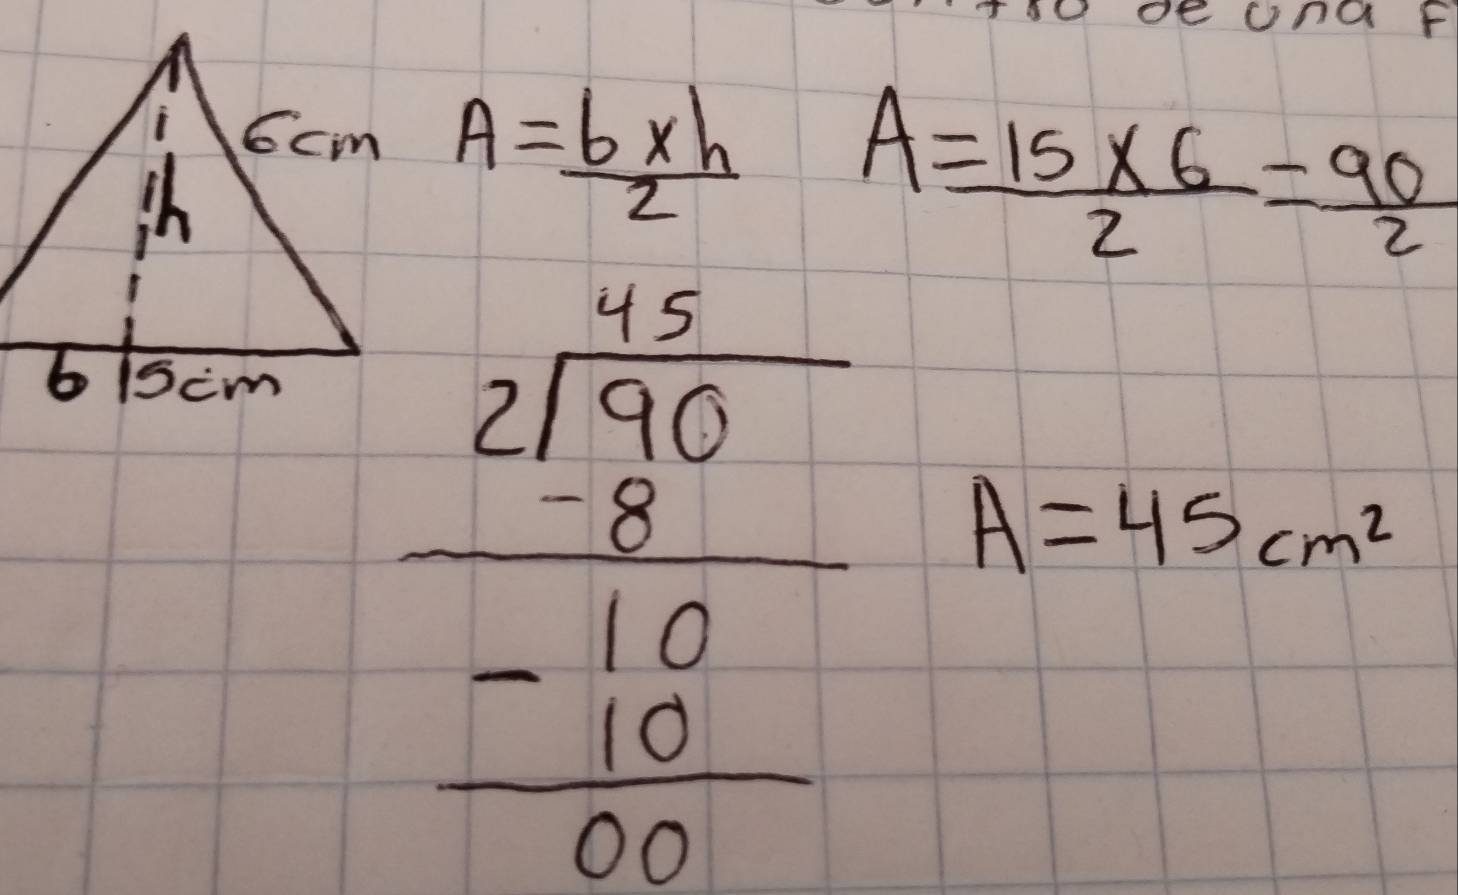 de una
6cm
h
b 15cm
A = b x h / 2
A = 15 x 6 / 2 = 90 / 2
45
2 90
- 8
10
- 10
00
A = 45 cm²